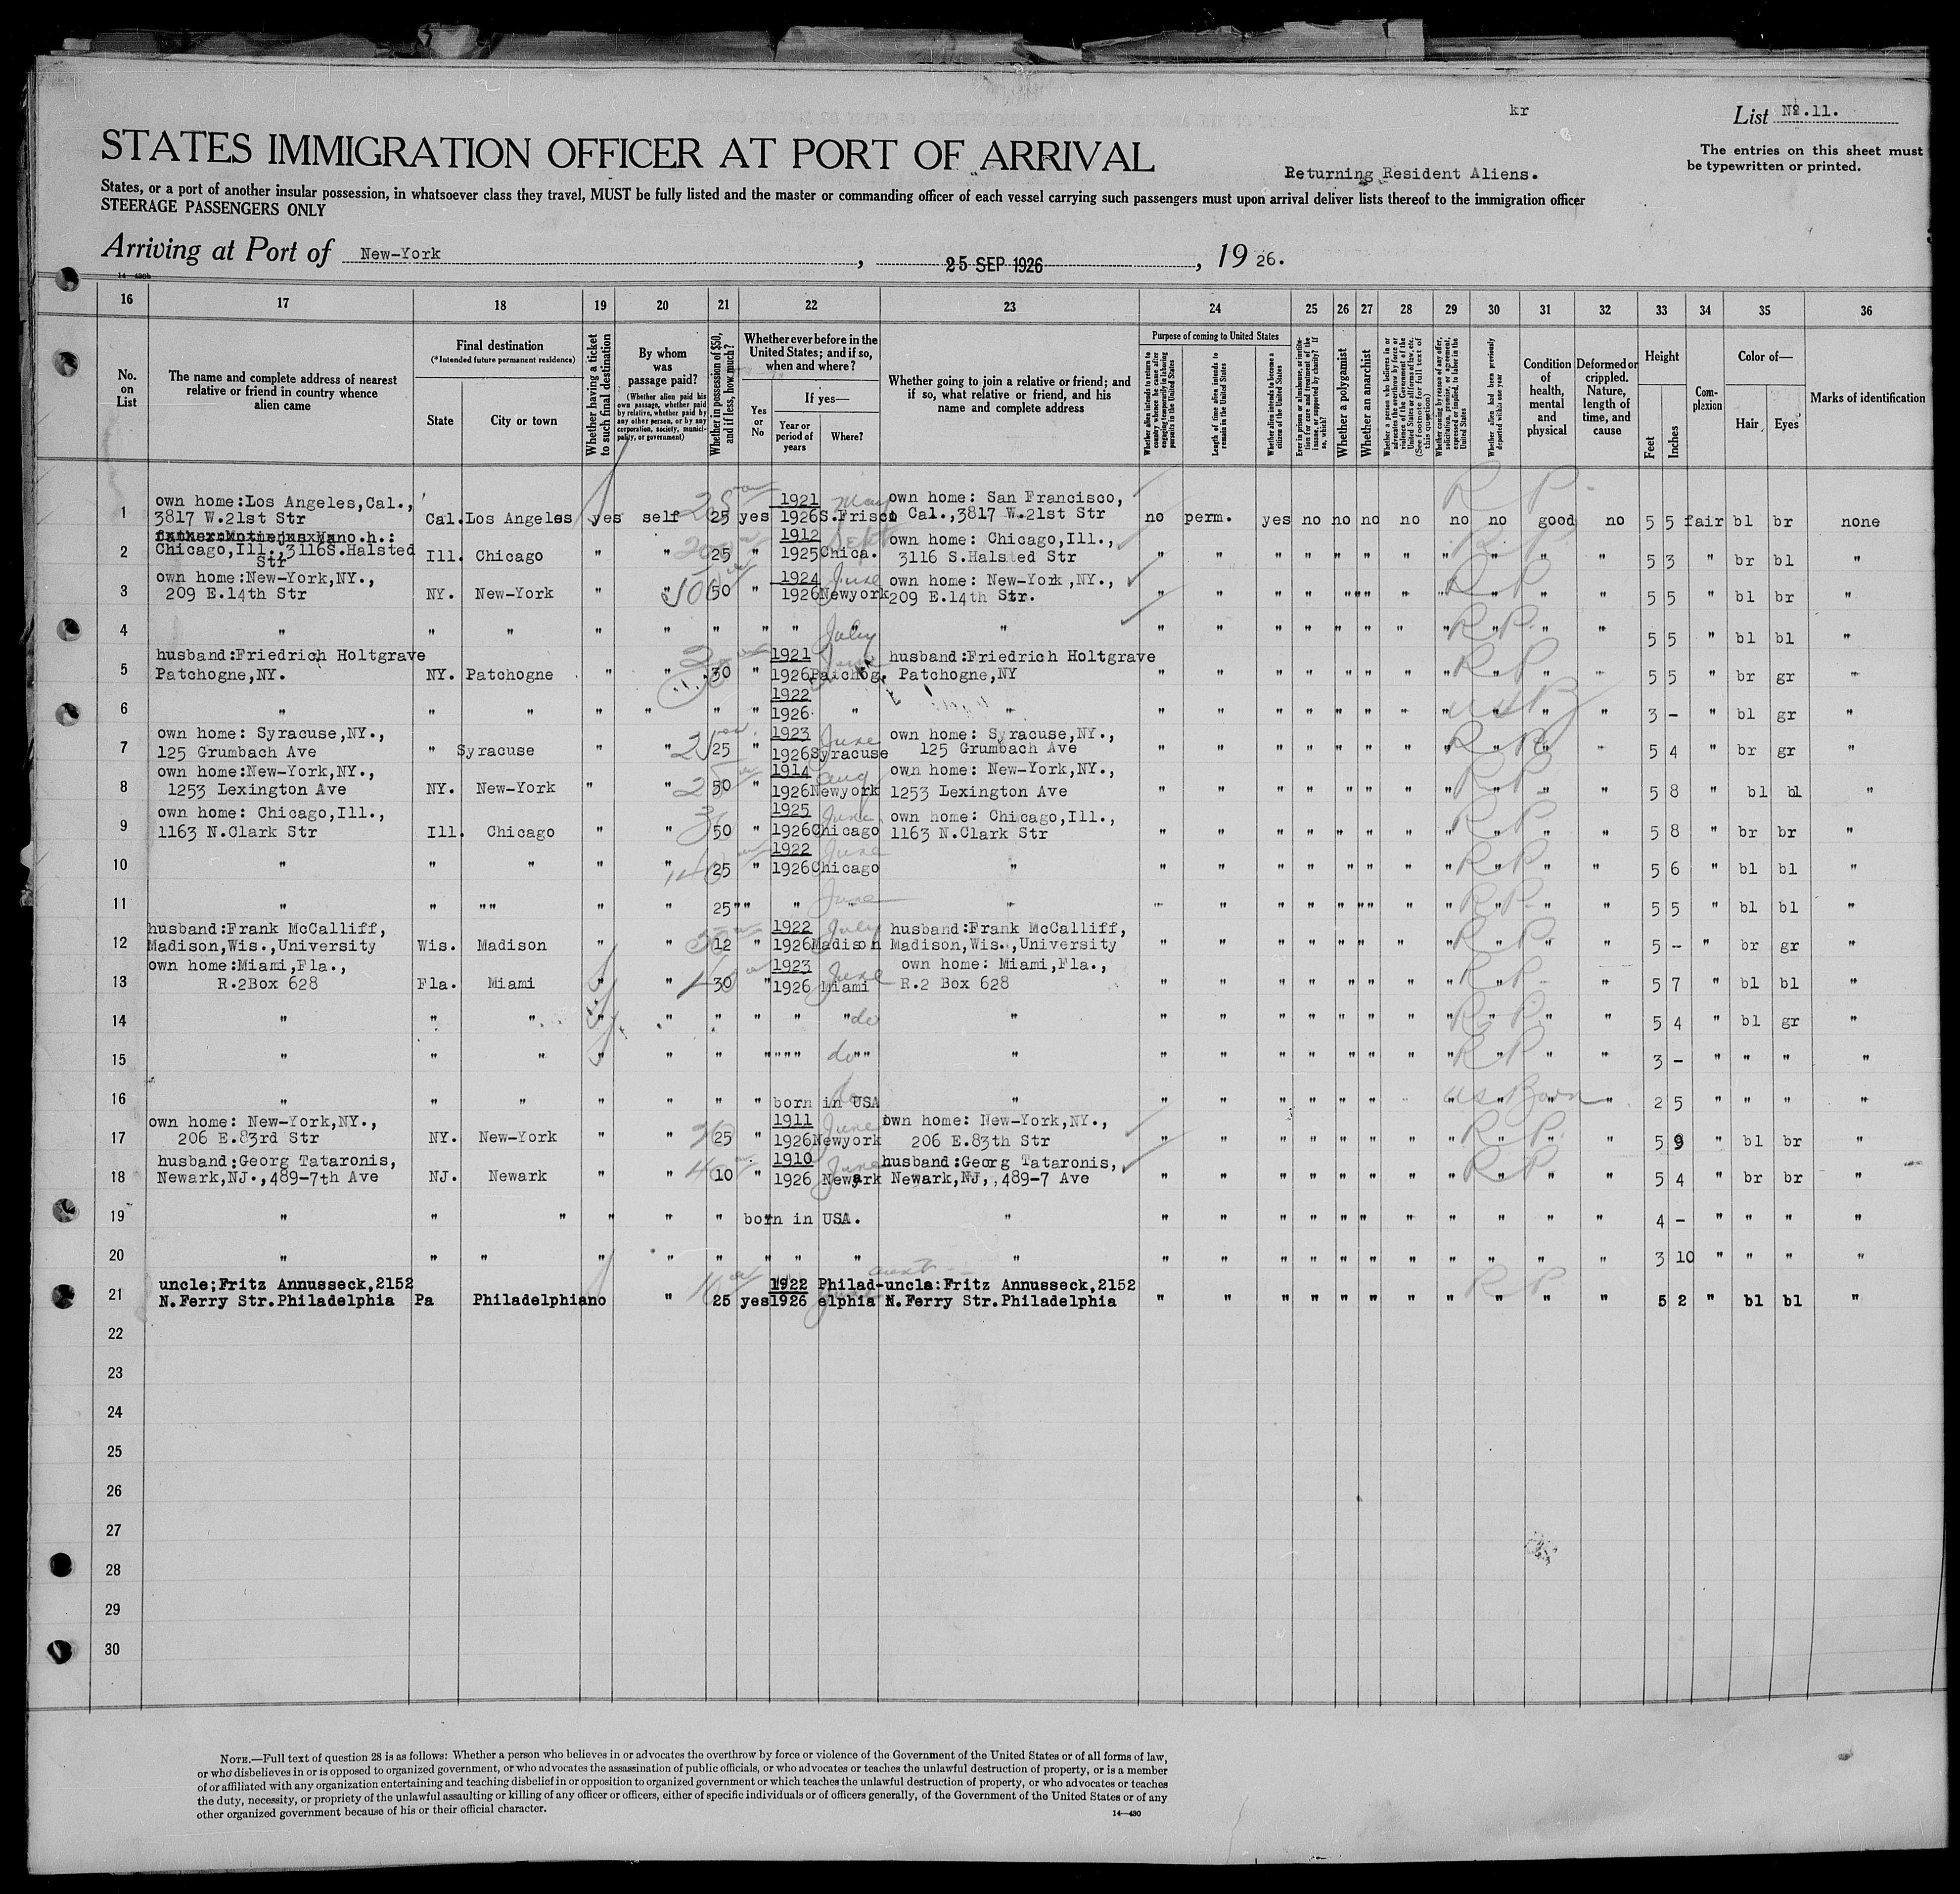 kr
List No.11.
STATES IMMIGRATION OFFICER AT PORT OF ARRIVAL
The entries on this sheet must be typewritten or printed.
Returning Resident Aliens.
States, or a port of another insular possession, in whatsoever class they travel, MUST be fully listed and the master or commanding officer of each vessel carrying such passengers must upon arrival deliver lists thereof to the immigration officer
STEERAGE PASSENGERS ONLY
Arriving at Port of New-York, 25 SEP 1926, 1926.
14-430b
16 17 18 19 20 21 22 23 24 25 26 27 28 29 30 31 32 33 34 35 36
No. on List
The name and complete address of nearest relative or friend in country whence alien came
Final destination
(*Intended future permanent residence)
State
City or town
Whether having a ticket to such final destination
By whom was passage paid?
(Whether alien paid his own passage, whether paid by relative, whether paid by any other person, or by any corporation, society, municipality, or government)
Whether in possession of $50, and if less, how much?
Whether ever before in the United States; and if so, when and where?
Yes or No
If yes—
Year or period of years
Where?
Whether going to join a relative or friend; and if so, what relative or friend, and his name and complete address
Purpose of coming to United States
Whether alien intends to return to country whence he came after engaging temporarily in laboring pursuits in the United States
Length of time alien intends to remain in the United States
Whether alien intends to become a citizen of the United States
Ever in prison or almshouse, or institution for care and treatment of the insane, or supported by charity? If so, which?
Whether a polygamist
Whether an anarchist
Whether a person who believes in or advocates the overthrow by force or violence of the Government of the United States or all forms of law, etc. (See footnote for full text of this question)
Whether coming by reason of any offer, solicitation, promise, or agreement, expressed or implied, to labor in the United States
Whether alien had been previously deported within one year
Condition of health, mental and physical
Deformed or crippled. Nature, length of time, and cause
Height
Feet
Inches
Complexion
Color of—
Hair
Eyes
Marks of identification
1 own home:Los Angeles,Cal., 3817 W.21st Str Cal. Los Angeles yes self 25 yes 1921 1926 S.Frisco May own home: San Francisco, Cal.,3817 W.21st Str no perm. yes no no no no no no good no 5 5 fair bl br none R P
2 Chicago,Ill.,3116S.Halsted Str Ill. Chicago " " 25 " 1912 1925 Chica. Sept own home: Chicago,Ill., 3116 S.Halsted Str " " " " " " " " " " " 5 3 " br bl " R P
3 own home:New-York,NY., 209 E.14th Str NY. New-York " " 50 " 1924 1926 Newyork June own home: New-York,NY., 209 E.14th Str. " " " " " " " " " " " 5 5 " bl br " R P
4 " " " " " " " " " July " " " " " " " " " " " " 5 5 " bl bl " R P
5 husband:Friedrich Holtgrave Patchogne,NY. NY. Patchogne " " 30 " 1921 1926 Patchog. June husband:Friedrich Holtgrave Patchogne,NY " " " " " " " " " " " 5 5 " br gr " R P
6 " " " " " " " 1922 1926 " " " " " " " " " " " " " 3 - " bl gr "
7 own home: Syracuse,NY., 125 Grumbach Ave " Syracuse " " 25 " 1923 1926 Syracuse June own home: Syracuse,NY., 125 Grumbach Ave " " " " " " " " " " " 5 4 " br gr " R P
8 own home:New-York,NY., 1253 Lexington Ave NY. New-York " " 50 " 1914 1926 Newyork aug own home: New-York,NY., 1253 Lexington Ave " " " " " " " " " " " 5 8 " bl bl " R P
9 own home: Chicago,Ill., 1163 N.Clark Str Ill. Chicago " " 50 " 1925 1926 Chicago June own home: Chicago,Ill., 1163 N.Clark Str " " " " " " " " " " " 5 8 " br br " R P
10 " " " " " 25 " 1922 1926 Chicago June " " " " " " " " " " " " 5 6 " bl bl " R P
11 " " "" " " 25 "" " " June " " " " " " " " " " " " 5 5 " bl bl " R P
12 husband:Frank McCalliff, Madison,Wis.,University Wis. Madison " " 12 " 1922 1926 Madison July husband:Frank McCalliff, Madison,Wis.,University " " " " " " " " " " " 5 - " br gr " R P
13 own home:Miami,Fla., R.2Box 628 Fla. Miami " " 30 " 1923 1926 Miami June own home: Miami,Fla., R.2 Box 628 " " " " " " " " " " " 5 7 " bl bl " R P
14 " " " " " " " " " do " " " " " " " " " " " " 5 4 " bl gr " R P
15 " " " " " " " " " " " do "" " " " " " " " " " " " " 3 - " " " " R P
16 " " " " " " " born in USA do " " " " " " " " " " " " 2 5 " " " " US Born
17 own home: New-York,NY., 206 E.83rd Str NY. New-York " " 25 " 1911 1926 Newyork June own home: New-York,NY., 206 E.83th Str " " " " " " " " " " " 5 9 " bl br " R P
18 husband:Georg Tataronis, Newark,NJ.,489-7th Ave NJ. Newark " " 10 " 1910 1926 Newark June husband:Georg Tataronis, Newark,NJ,,489-7 Ave " " " " " " " " " " " 5 4 " br br " R P
19 " " " " " " born in USA. " " " " " " " " " " " " 4 - " " " "
20 " " " " " " " " " " " " " " " " " " " " " 3 10 " " " "
21 uncle;Fritz Annusseck,2152 N.Ferry Str.Philadelphia Pa Philadelphia no " 25 yes 1922 1926 Philadelphia June aunt uncle:Fritz Annusseck,2152 N.Ferry Str.Philadelphia " " " " " " " " " " " 5 2 " bl bl " R P
22
23
24
25
26
27
28
29
30
NOTE.—Full text of question 28 is as follows: Whether a person who believes in or advocates the overthrow by force or violence of the Government of the United States or of all forms of law,
or who disbelieves in or is opposed to organized government, or who advocates the assassination of public officials, or who advocates or teaches the unlawful destruction of property, or is a member
of or affiliated with any organization entertaining and teaching disbelief in or opposition to organized government or which teaches the unlawful destruction of property, or who advocates or teaches
the duty, necessity, or propriety of the unlawful assaulting or killing of any officer or officers, either of specific individuals or of officers generally, of the Government of the United States or of any
other organized government because of his or their official character.
14—430